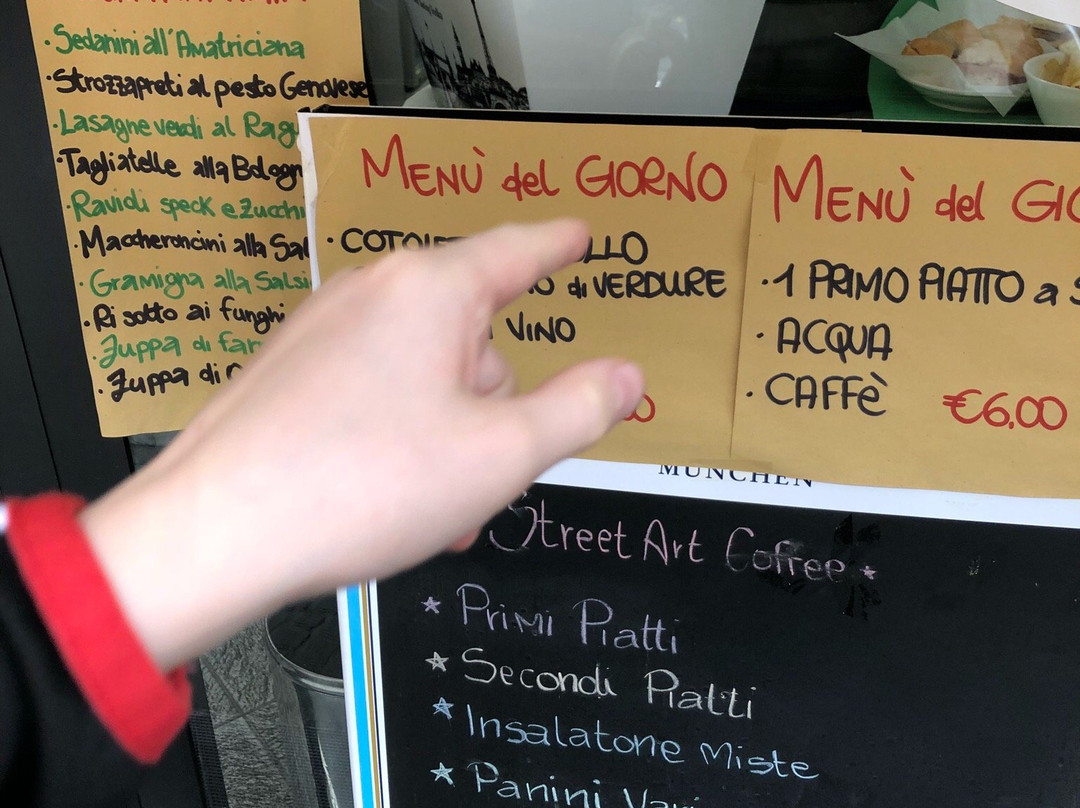 ·Sedanini all'Amatriciana
·Strozzapreti al pesto Genovese
·Lasagne verdi al
·Tagliatelle alla
·Ravioli speck e
·Maccheroncini alla
·Gramigna alla
·Risotto ai funghi
·Zuppa di
·Zuppa di
MENÙ del GIORNO
di VERDURE
VINO
MENÙ del
·1 PRIMO PIATTO a
·ACQUA
·CAFFÈ €6,00
MÜNCHEN
Street Art Coffee *
* Primi Piatti
* Secondi Piatti
* Insalatone Miste
* Panini